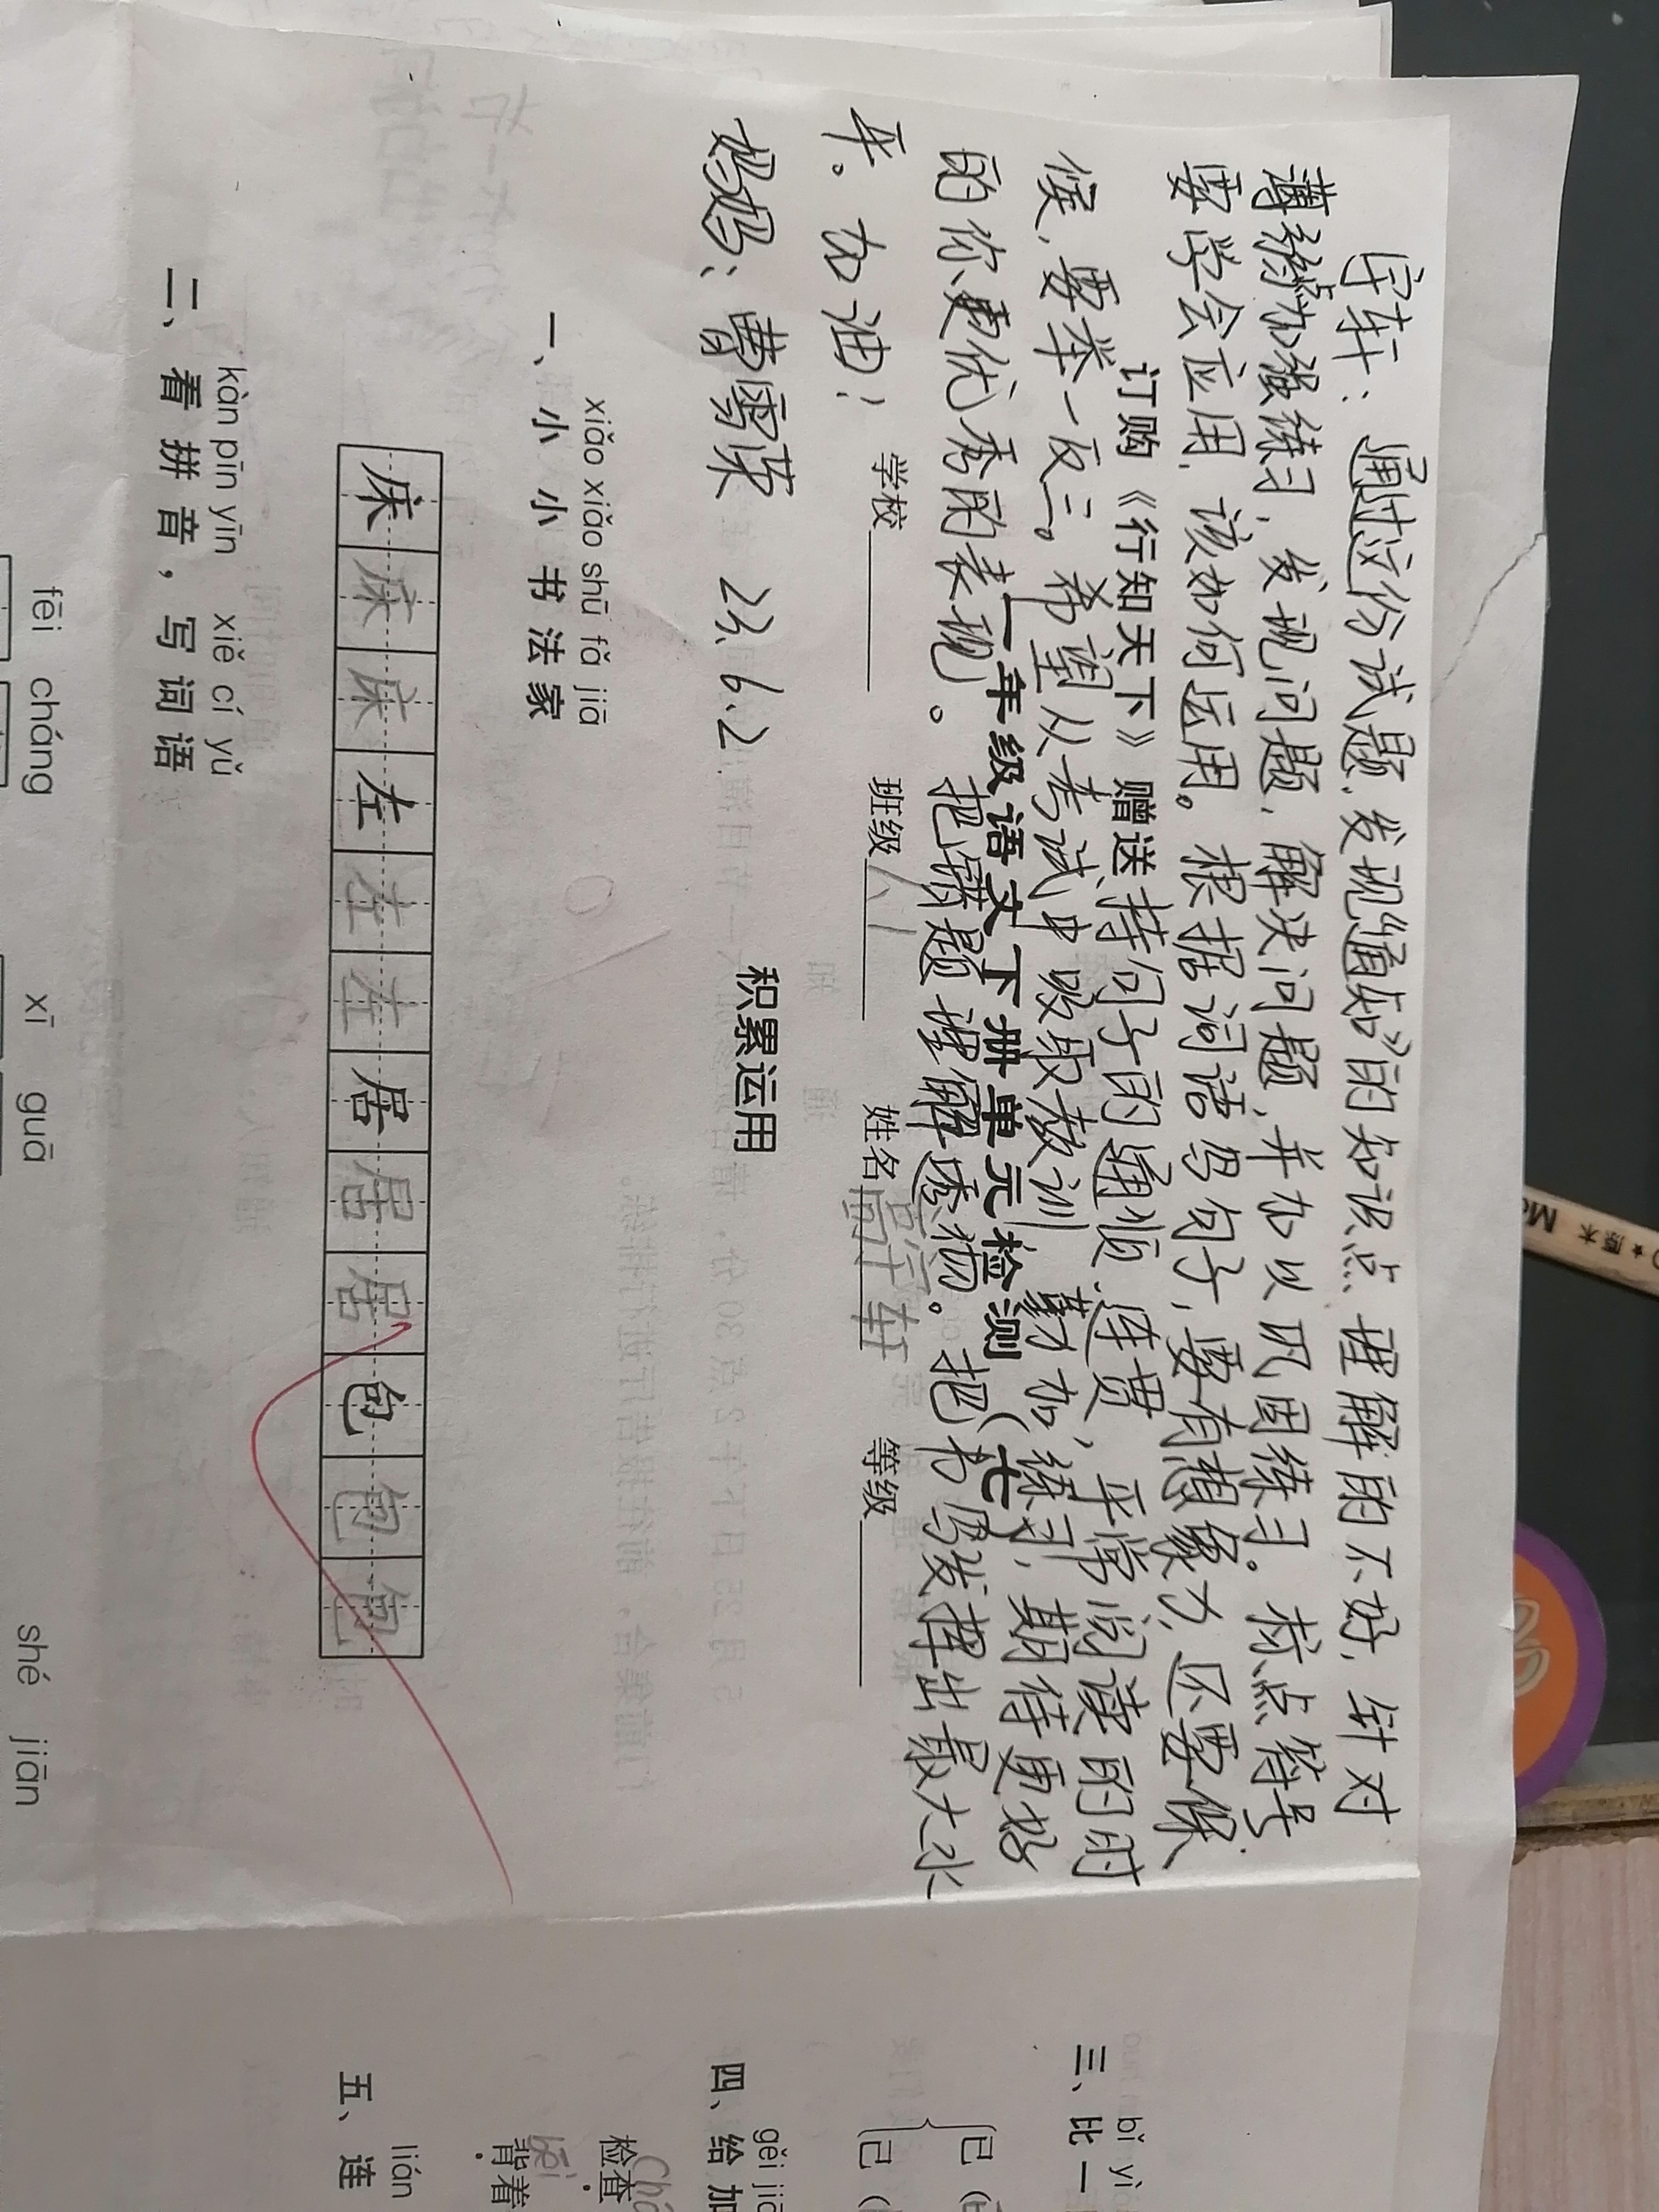 宇轩：通过这份试题，发现《通知》的知识点理解的不好，针对
薄弱点加强练习，发现问题，解决问题，并加以巩固练习。标点符号
要学会应用，该如何运用。根据词语写句子，要有想象力，还要保
订购《行知天下》赠送
持句子的通顺、连贯，平常阅读的时
候，要举一反三。希望从考试中吸取教训，勤加练习，期待更好
一年级语文下册单元检测（七）
的你，更优秀的表现。把课题理解透彻。把书写发挥出最大水
平。加油！
学校
班级
姓名
宇轩
等级
妈妈：曹雪荣 23.6.2
积累运用
xiǎo xiǎo shū fǎ jiā
一、小小书法家
床床床左左左居居居包包包
kàn pīn yīn xiě cí yǔ
二、看拼音，写词语
fēi cháng xī guā shé jiān
bǐ yì
三、比一
已（
己（
gěi jiā
四、给加
检查
背着
bēi
lián
五、连